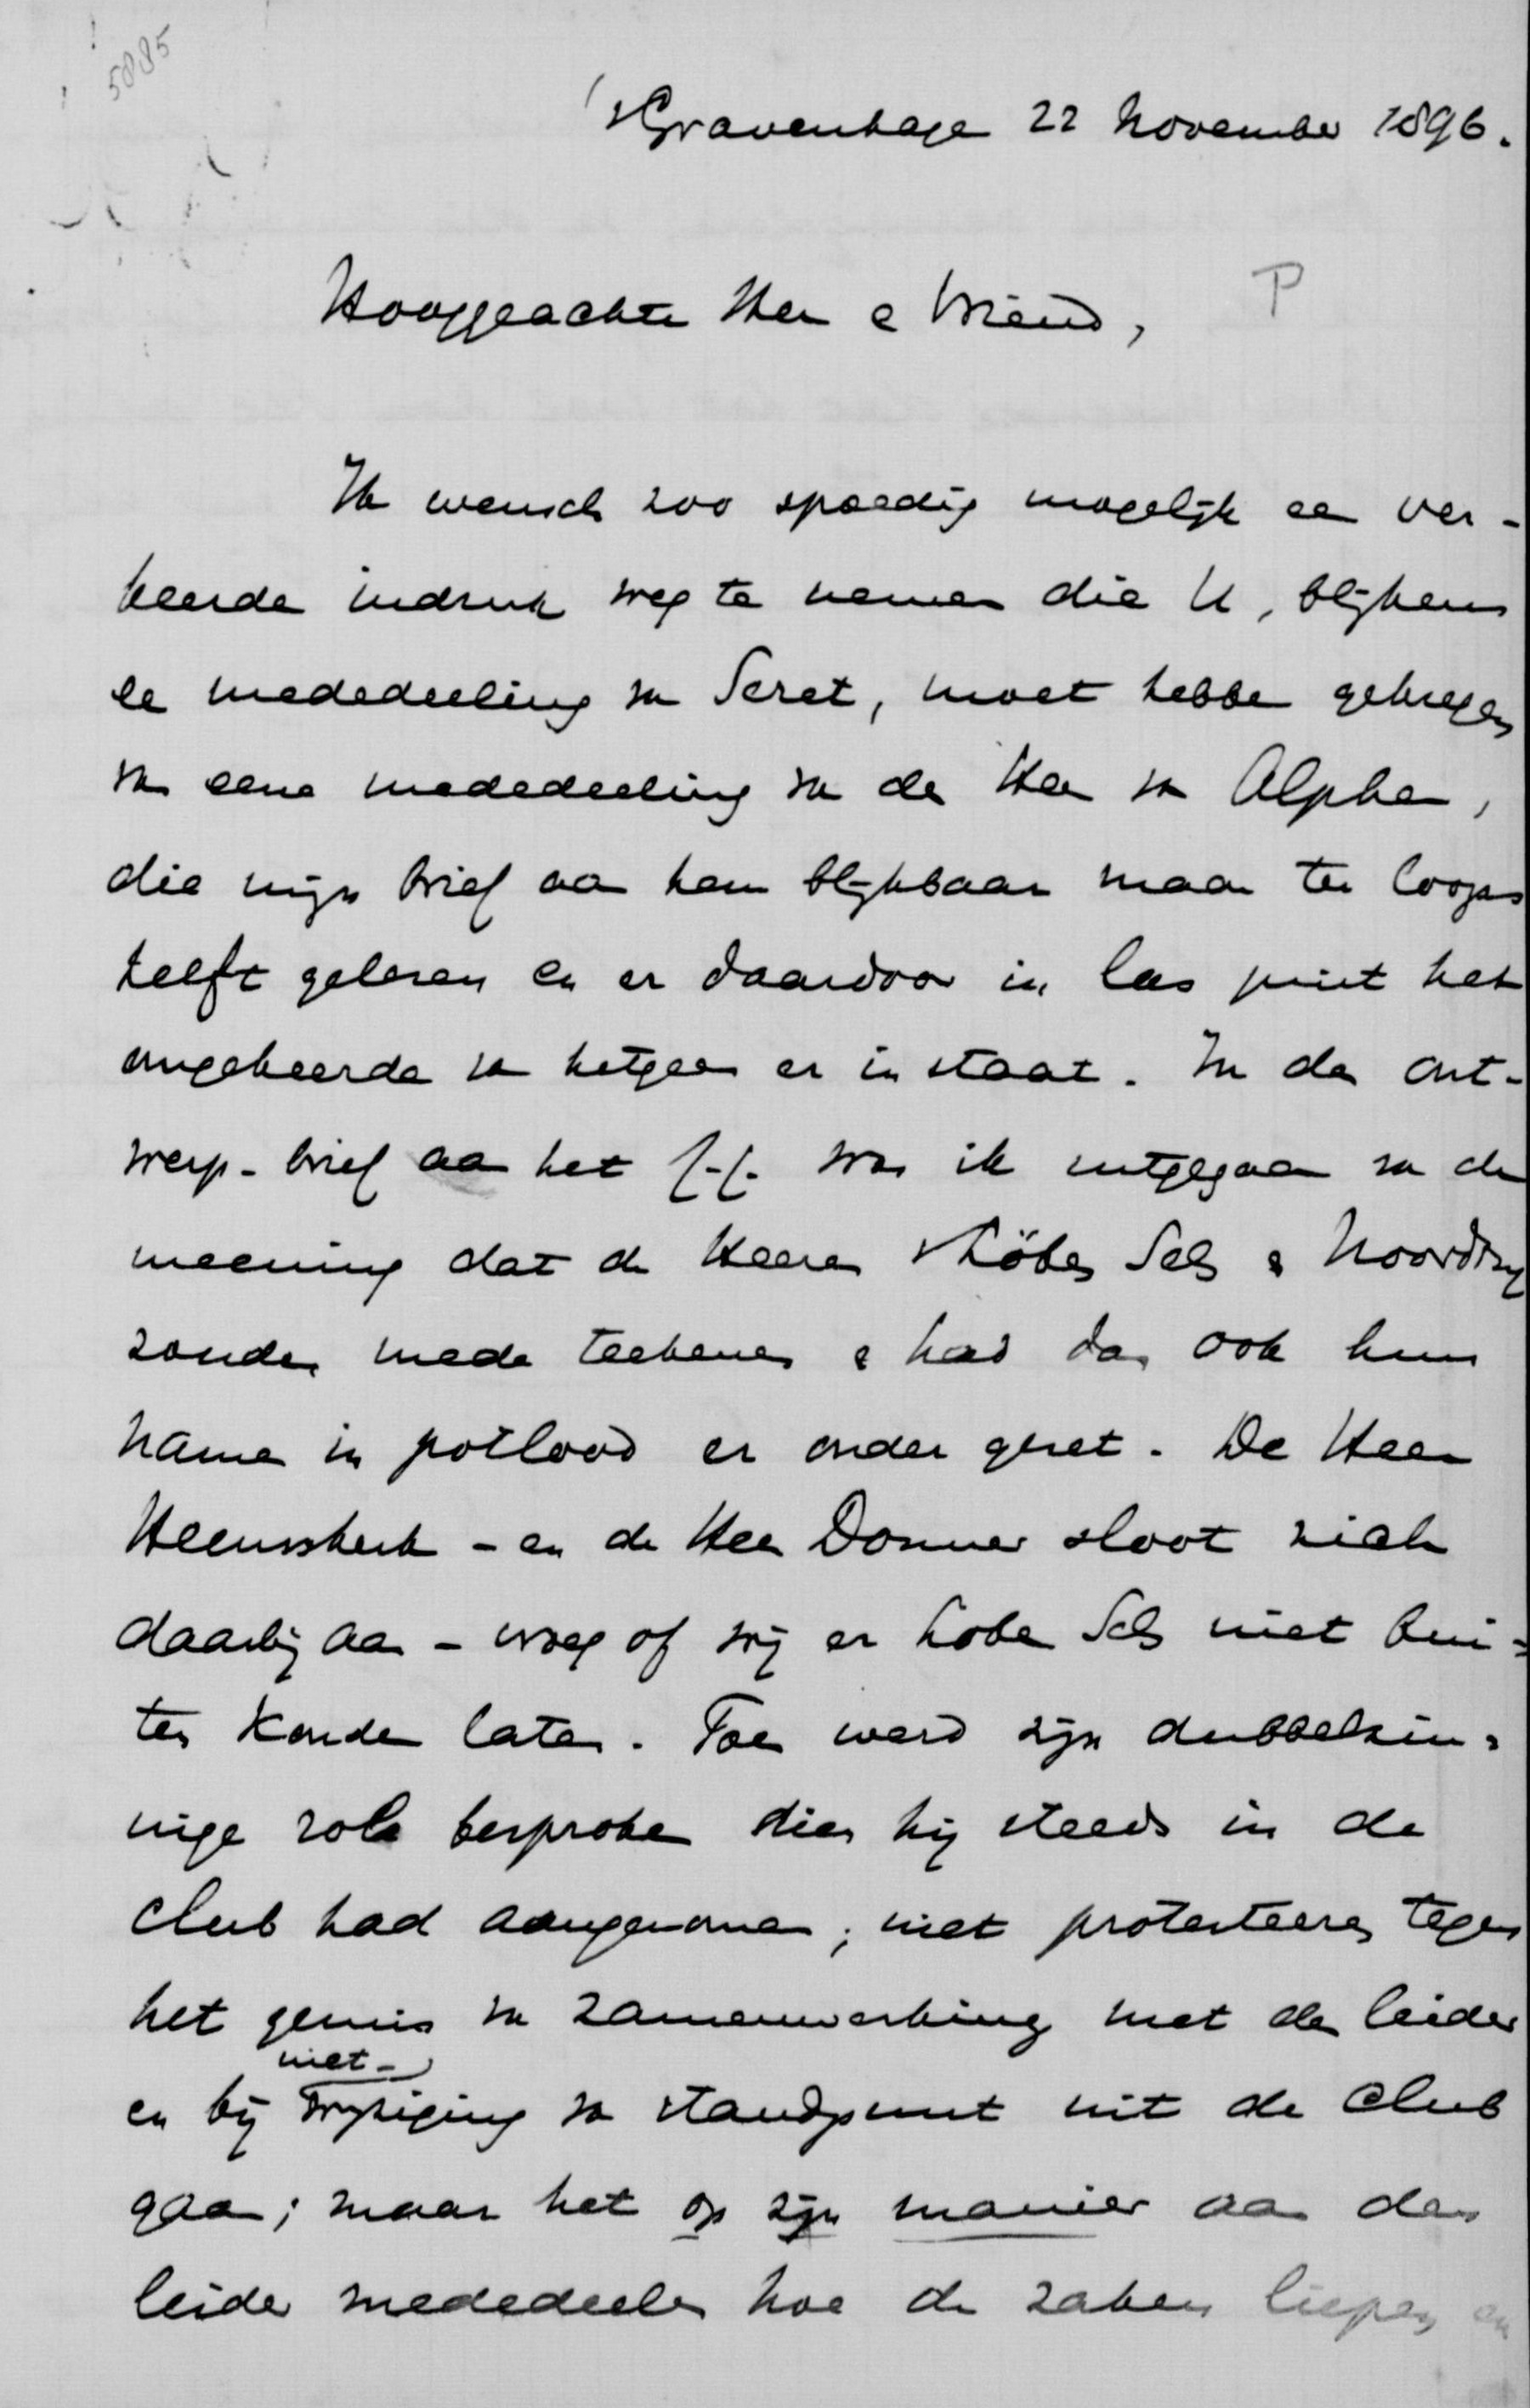 5885
'sGravenhage 22 November 1896.
Hooggeachte Heer e Vriend, P
Ik wensch zoo spoedig mogelijk een ver-
keerde indruk weg te nemen die U, blijkens
ee mededeeling va Seret, moet hebbe gekregen
va eene mededeeling va de Heer va Alphen,
die mijn brief aan hem blijkbaar maar ter loops
heeft gelezen en er daardoor in las juist het
omgekeerde va hetgeen er in staat. In den ont-
werp-brief aan het was ik uitgegaan va de
meening dat de Heeren Köbes Sels e Noordtzy
zouden mede teekenen e had dan ook hun
name in potlood er onder gezet. De Heer
Heemskerk - en de Heer Donner sloot zich
daarbij aan - vroeg of wij er Lobe Sels niet bui-
ten konden laten. Toen werd zijn dubbelzin-
nige rol besproken dien hij steeds in de
club had aangenomen; niet protesteeren tegen
het gemis va zamenwerking met den leider
niet-
en bij wijziging va standpunt uit de club
gaan; maar het op zijn manier aan den
leider mededeelen hoe de zaken liepen en